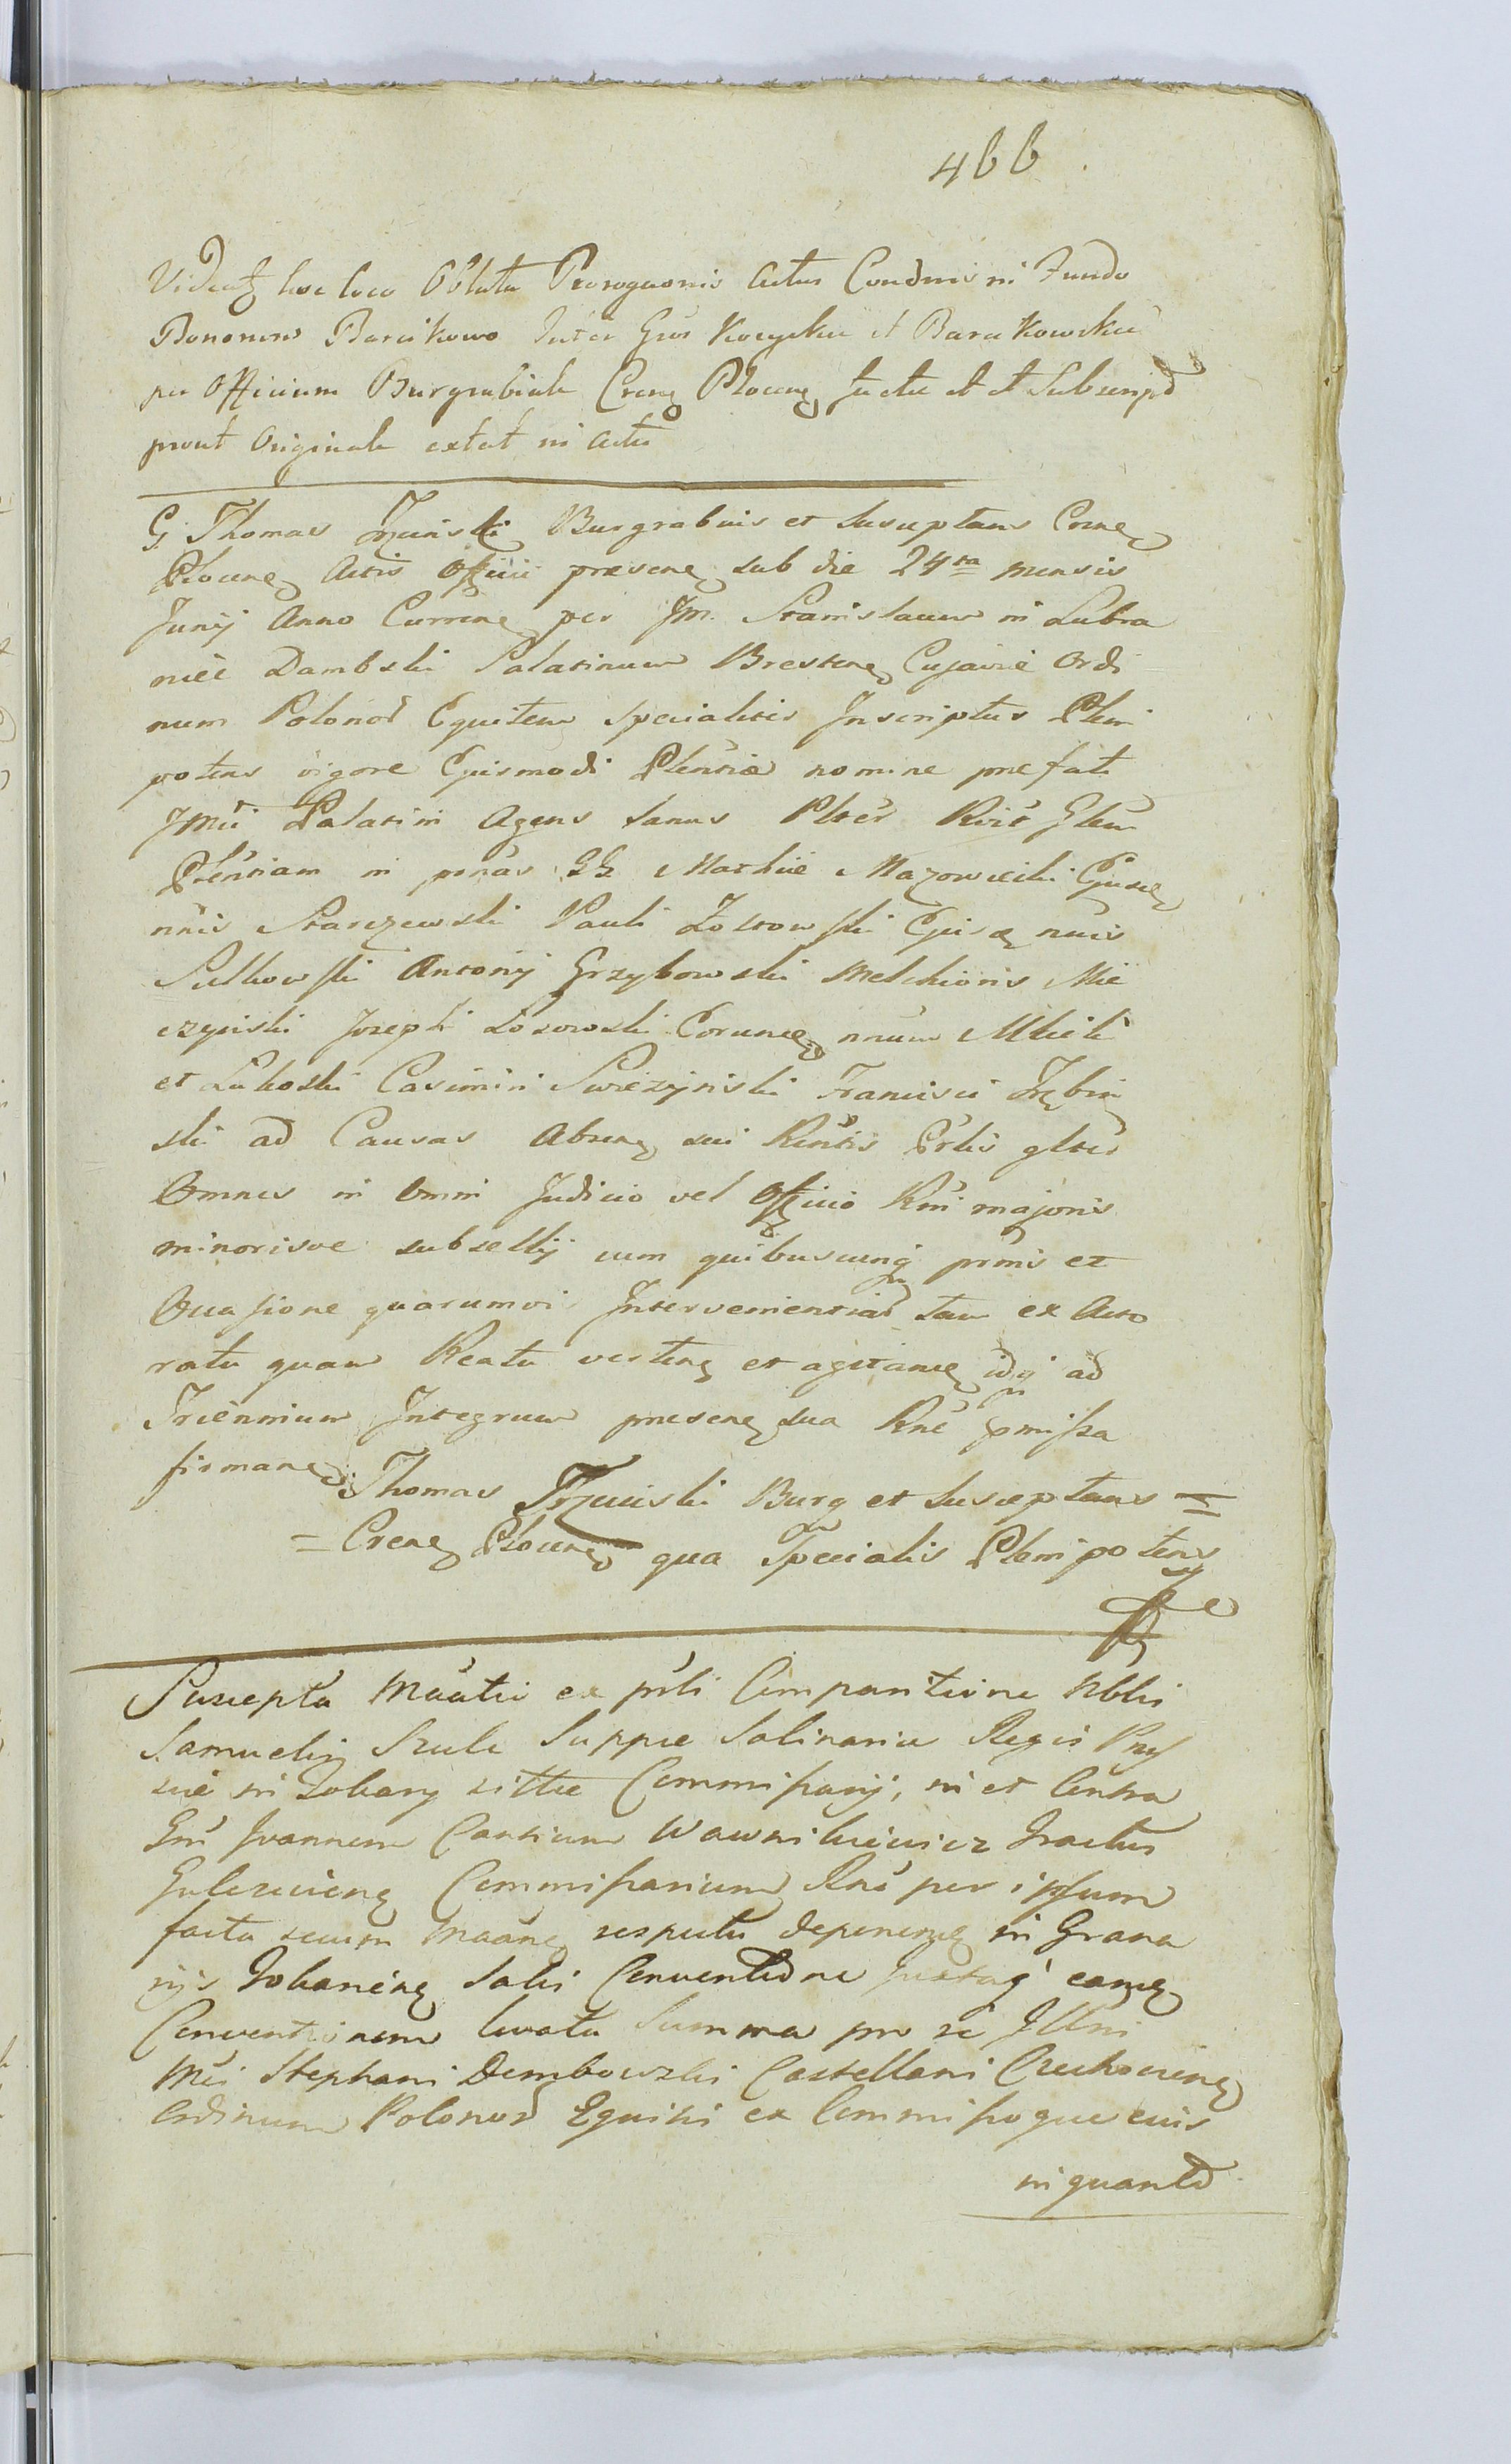 466
Videatz hoc loco Oblata Prorogaonis Actus Condnis in Fundo
Bonorum Barcikowo Inter Gnos et Barcikowskie
per Officium Burgrabiale Crens Plocens facta et et Subscript
prout Originale extat in Actis
G. Thomas Trzcinski Burgrabius et Susceptans Crens
Plocens Actis Officii praesens sub die 24ta mensis
Junij Anno Currens per Jm. Stanislaum in Lubra
niec Dambski Palatinum Brestens Cujaviae Ordi
num Polonor Equitem Specialiter Inscriptus Pleni
potens vigore Ejusmodi Plentiae nomine praefati
Jmci Palatini Agens sanus Plter Rvit Glem
Plentiam in psnas GG Mathiae Mazowiecki Ejusq
nnis Starczewski Pauli Zoltowski Ejusq nnis
Sulkowski Antonij Grzybowski Melchioris Mie
czynski Josephi Losowski Corunq nnum Mlicki
et Lukoski Casimiri Swiezynski Francisci Trębin
ski ad Causas Absens sui Rlentis Prlis gltes
Omnes in omni Judicio vel Officio Rni majoris
minorisve subsellij cum quibuscunq psnis et
Occasione quarumvis Intervenientiar tam ex Acto
ratu quam Reatu vertens et agitans idq ad
Triennium Integrum praesens sua Rne pmissa
firmans. Thomas Trzcinski Burg et Susceptans =
= Crens Plocens qua Specialis Plenipotens
Suscepta Manlis ex prli Comparitione Nblis
Samuelis Szulc Suppae Salinariae Regis Prus
siae in Dobany sittae Commissarij, in et Contra
Gnu Joannem Cantium Wawnikiewicz Tractus
Commissarium Rne per ipsum
facta secum respectu deponens in Grana
rijs Dobaniens Salis Conventione Juxtaq eamq
Conventionem Levata Summa pro se Illmi
Mci Stephani Dembowski Castellani Czechoviens
Ordinum Polonor Equitis ex Commissoque ejus
in quanto